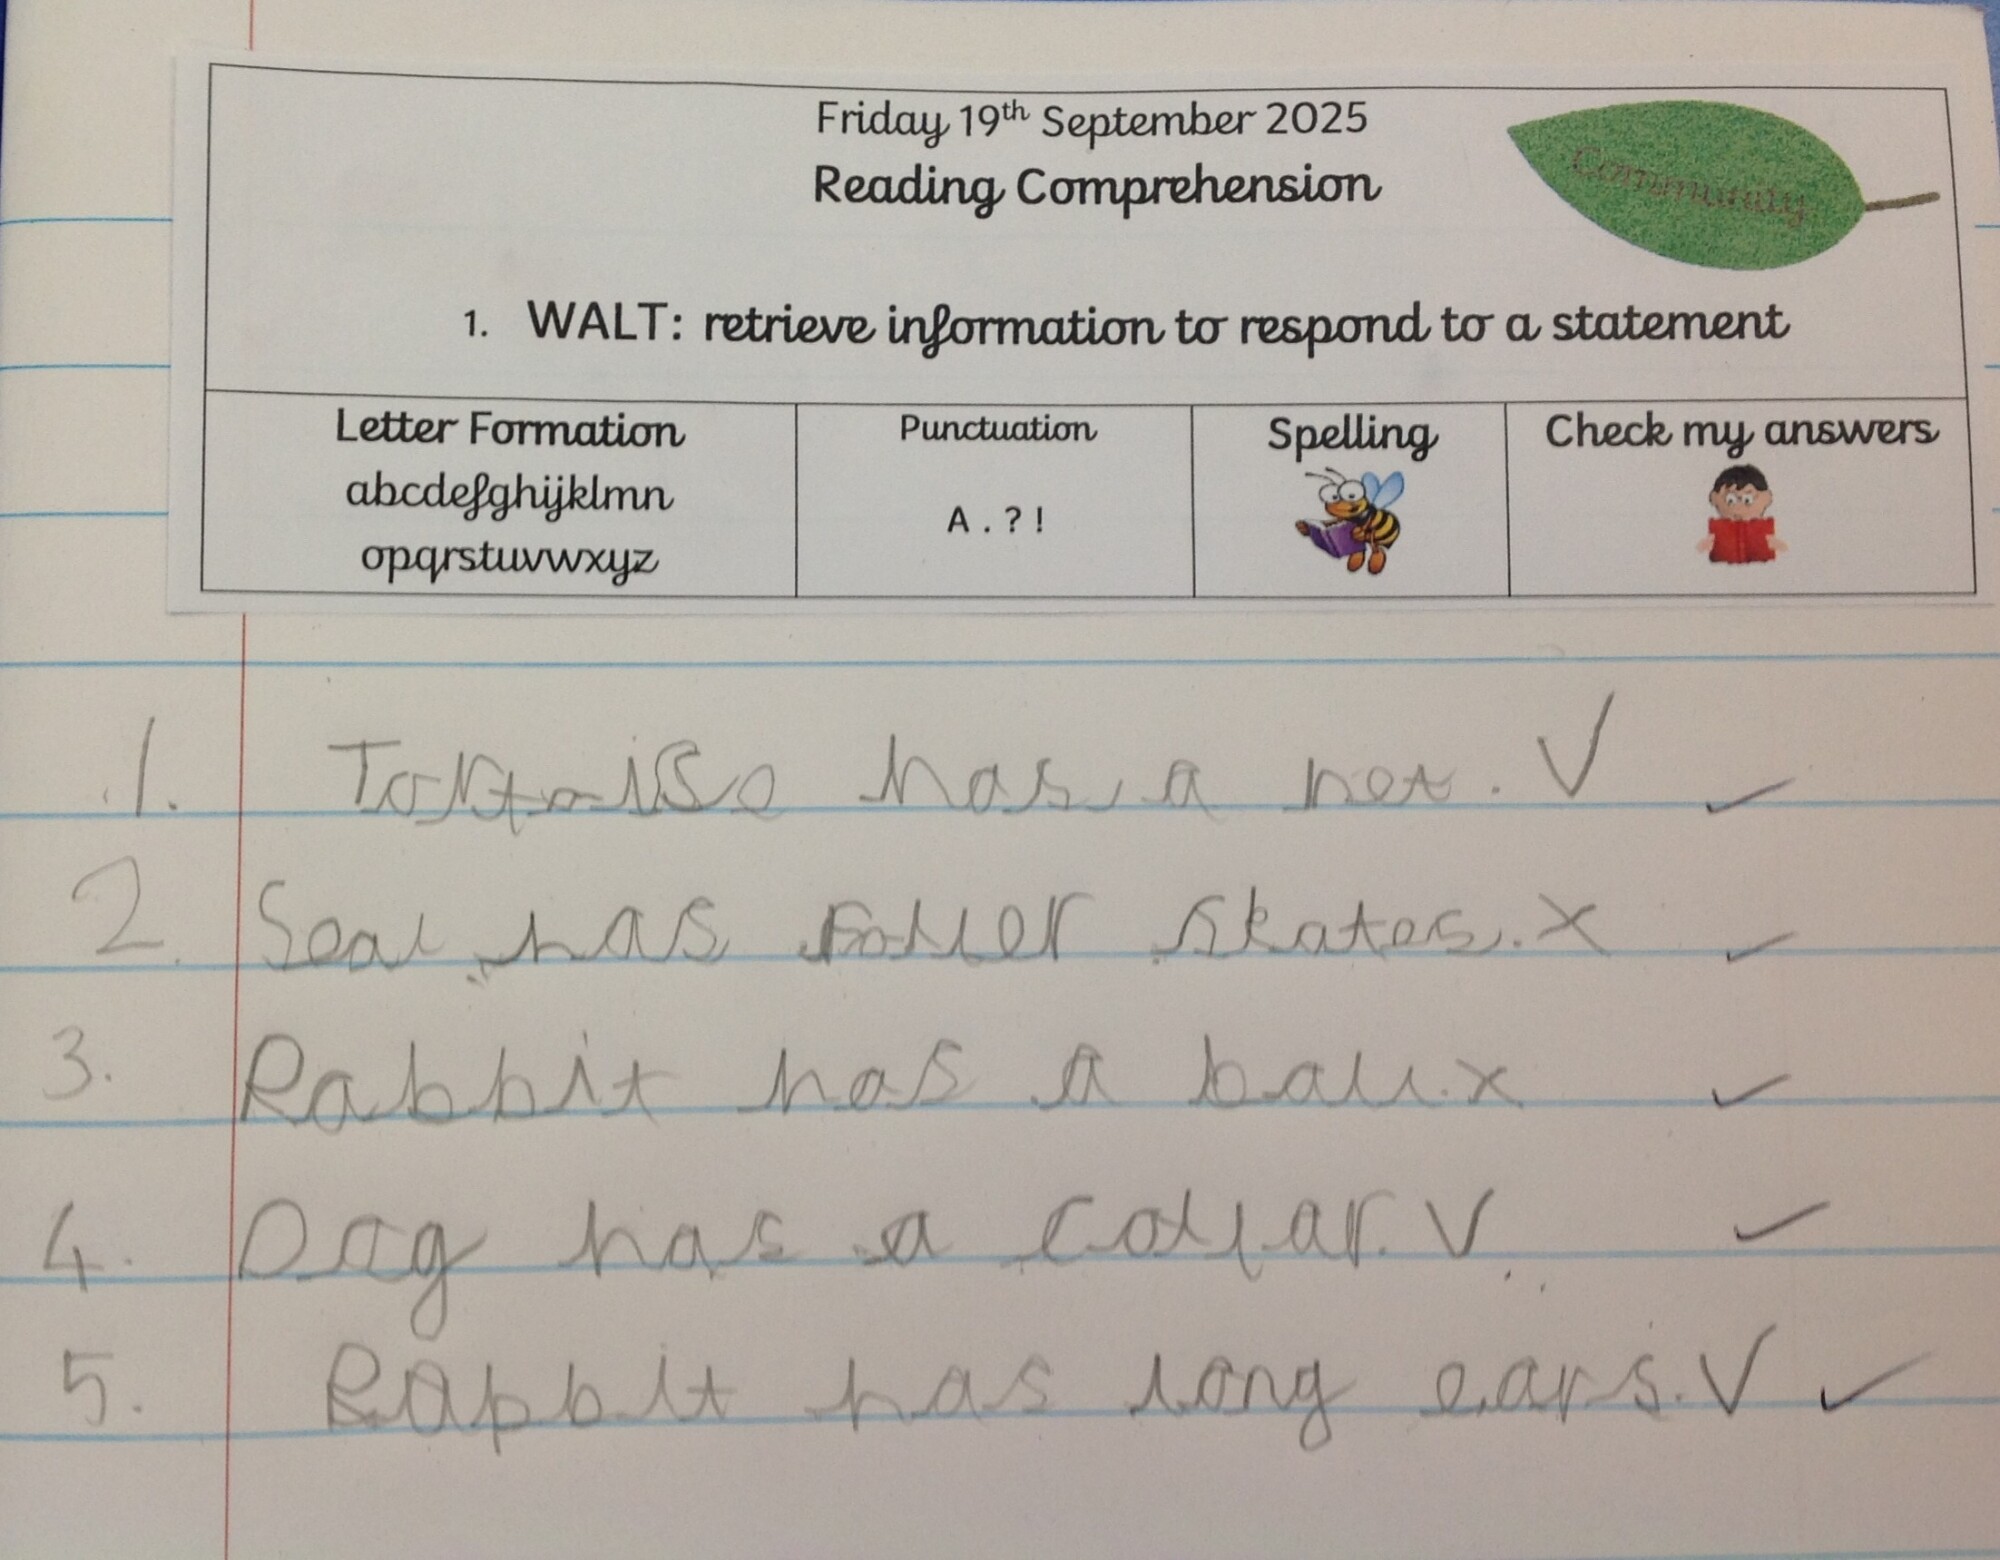 Friday 19th September 2025
Reading Comprehension
Community
1. WALT: retrieve information to respond to a statement
Letter Formation
abcdefghijklmn
opqrstuvwxyz
Punctuation
A . ? !
Spelling
Check my answers
1. Tortoise has a net. ✓ ✓
2. Seal has roller skates. x ✓
3. Rabbit has a ball. x ✓
4. Dog has a collar. ✓ ✓
5. Rabbit has long ears. ✓ ✓